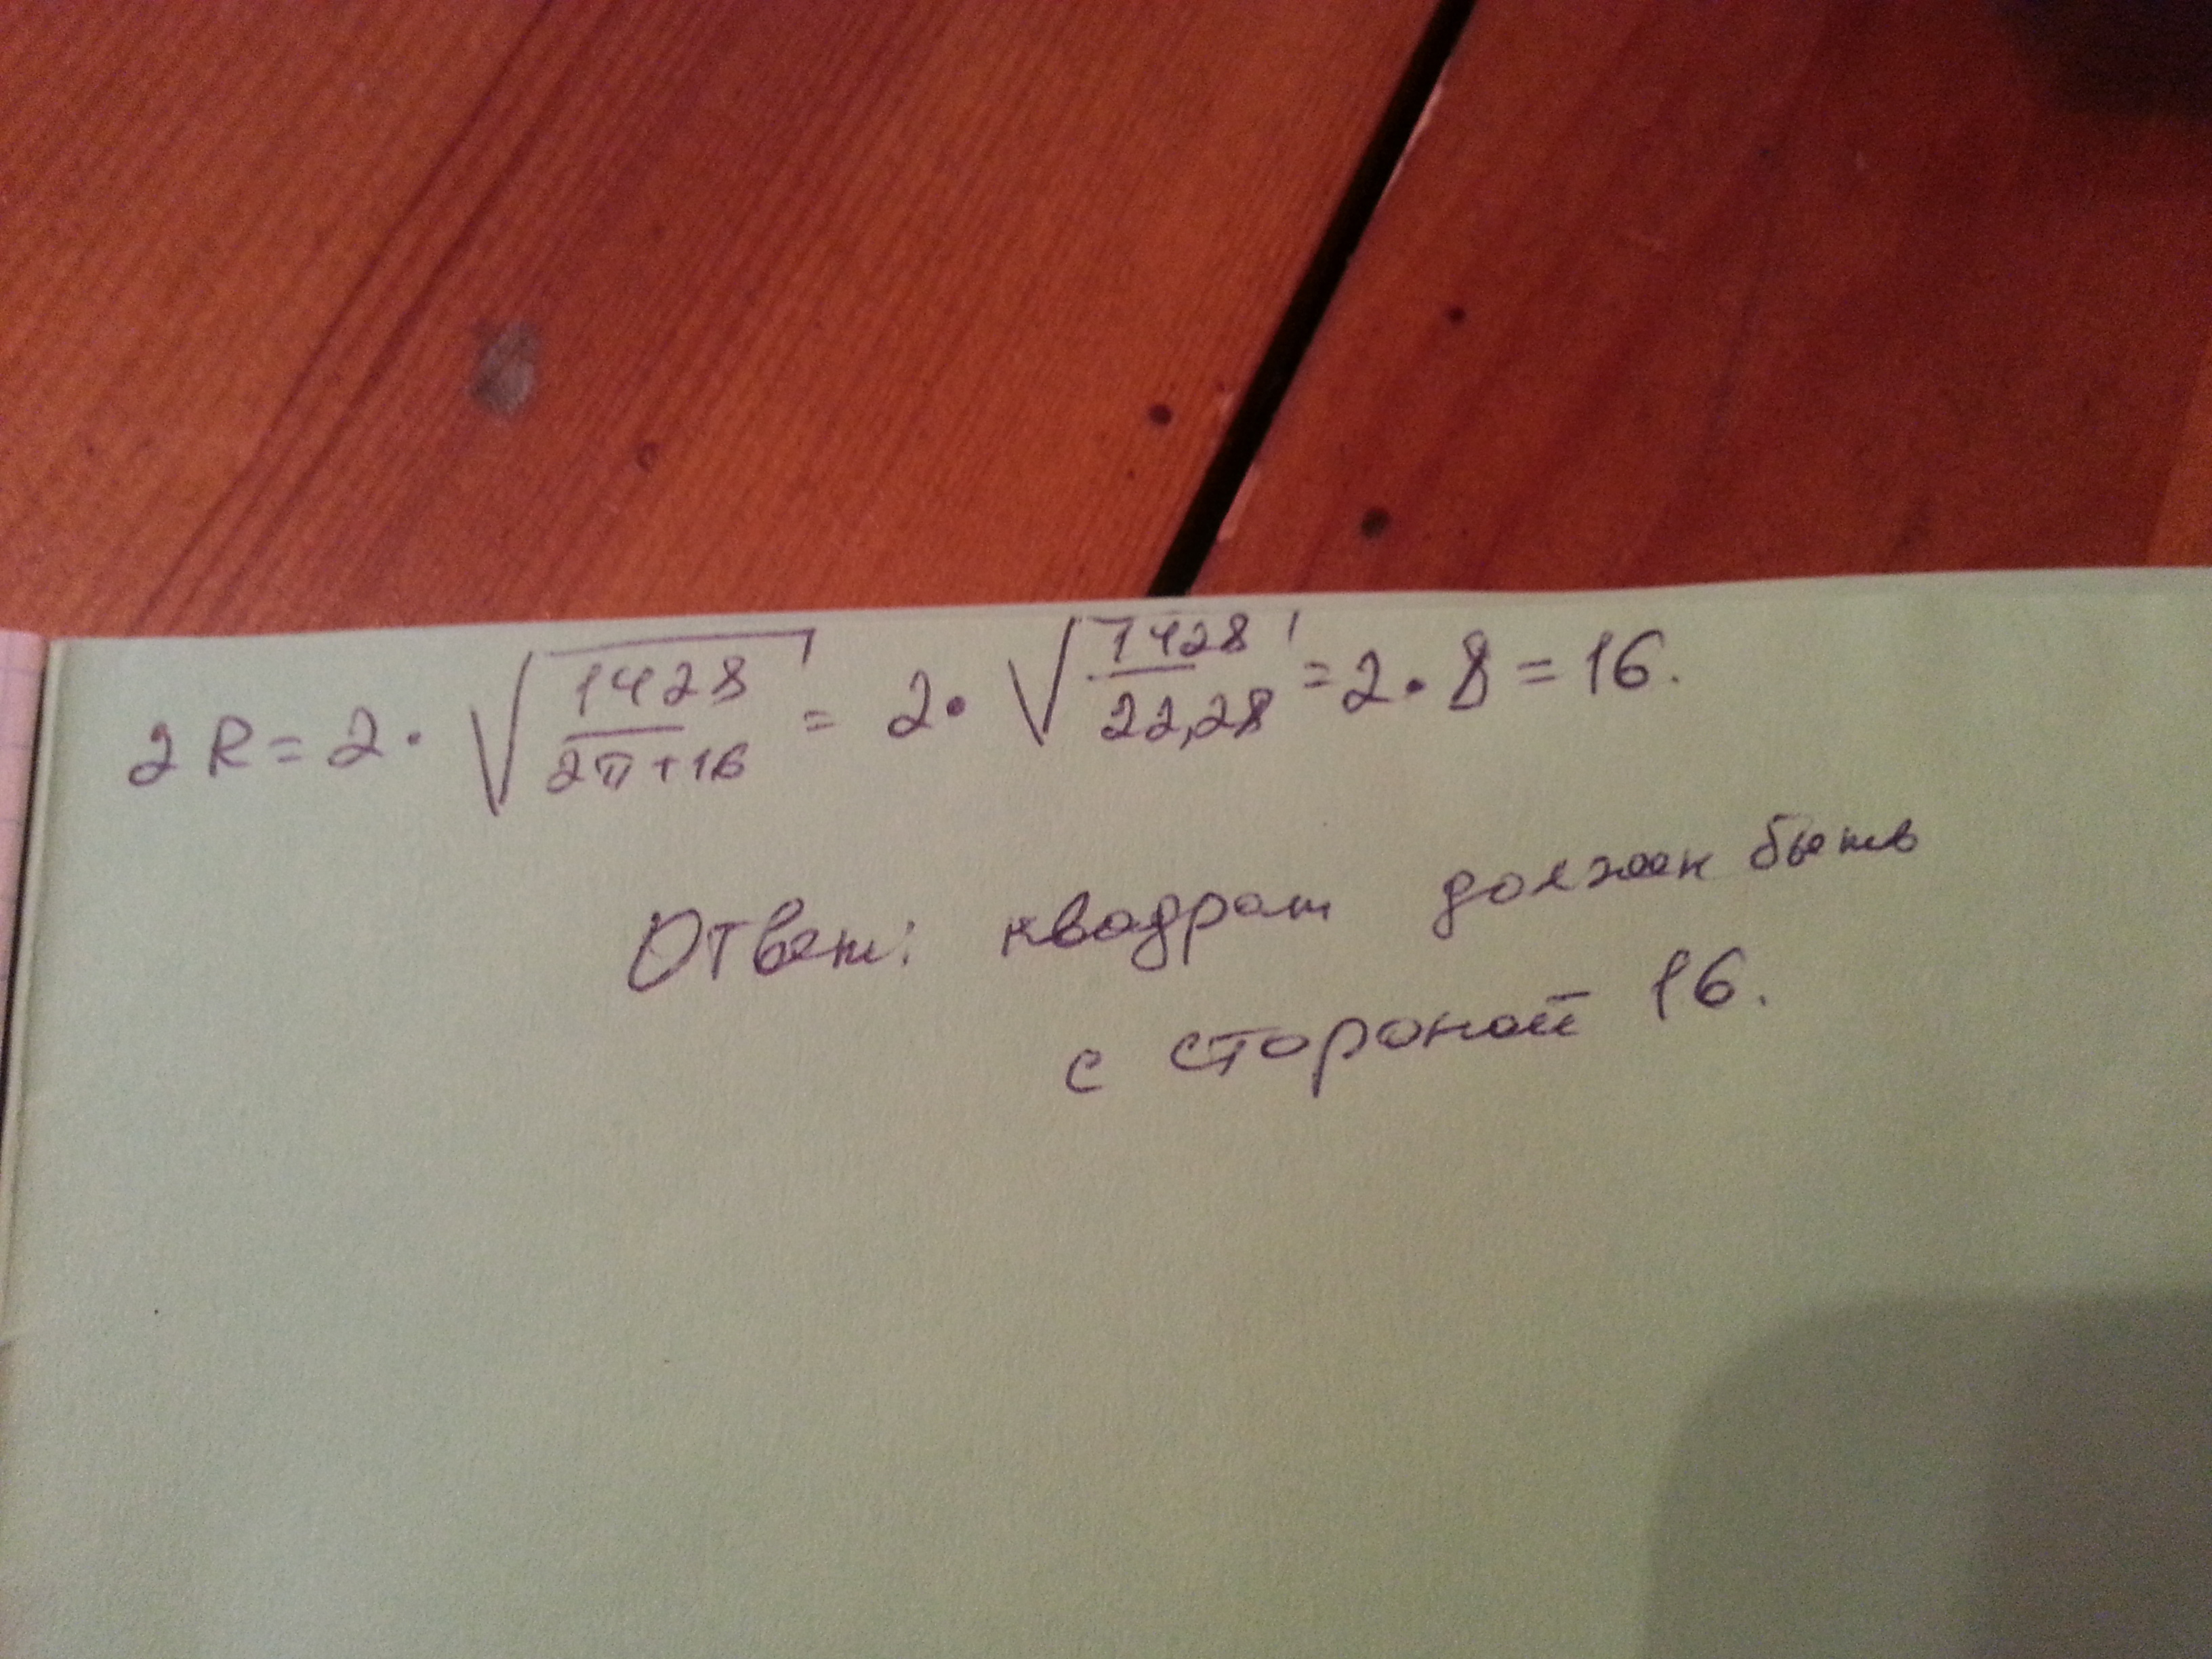 2R = 2 · √(1428/(2π+16)) = 2 · √(1428/22,28) = 2 · 8 = 16.
Ответ: квадрат должен быть
с стороной 16.